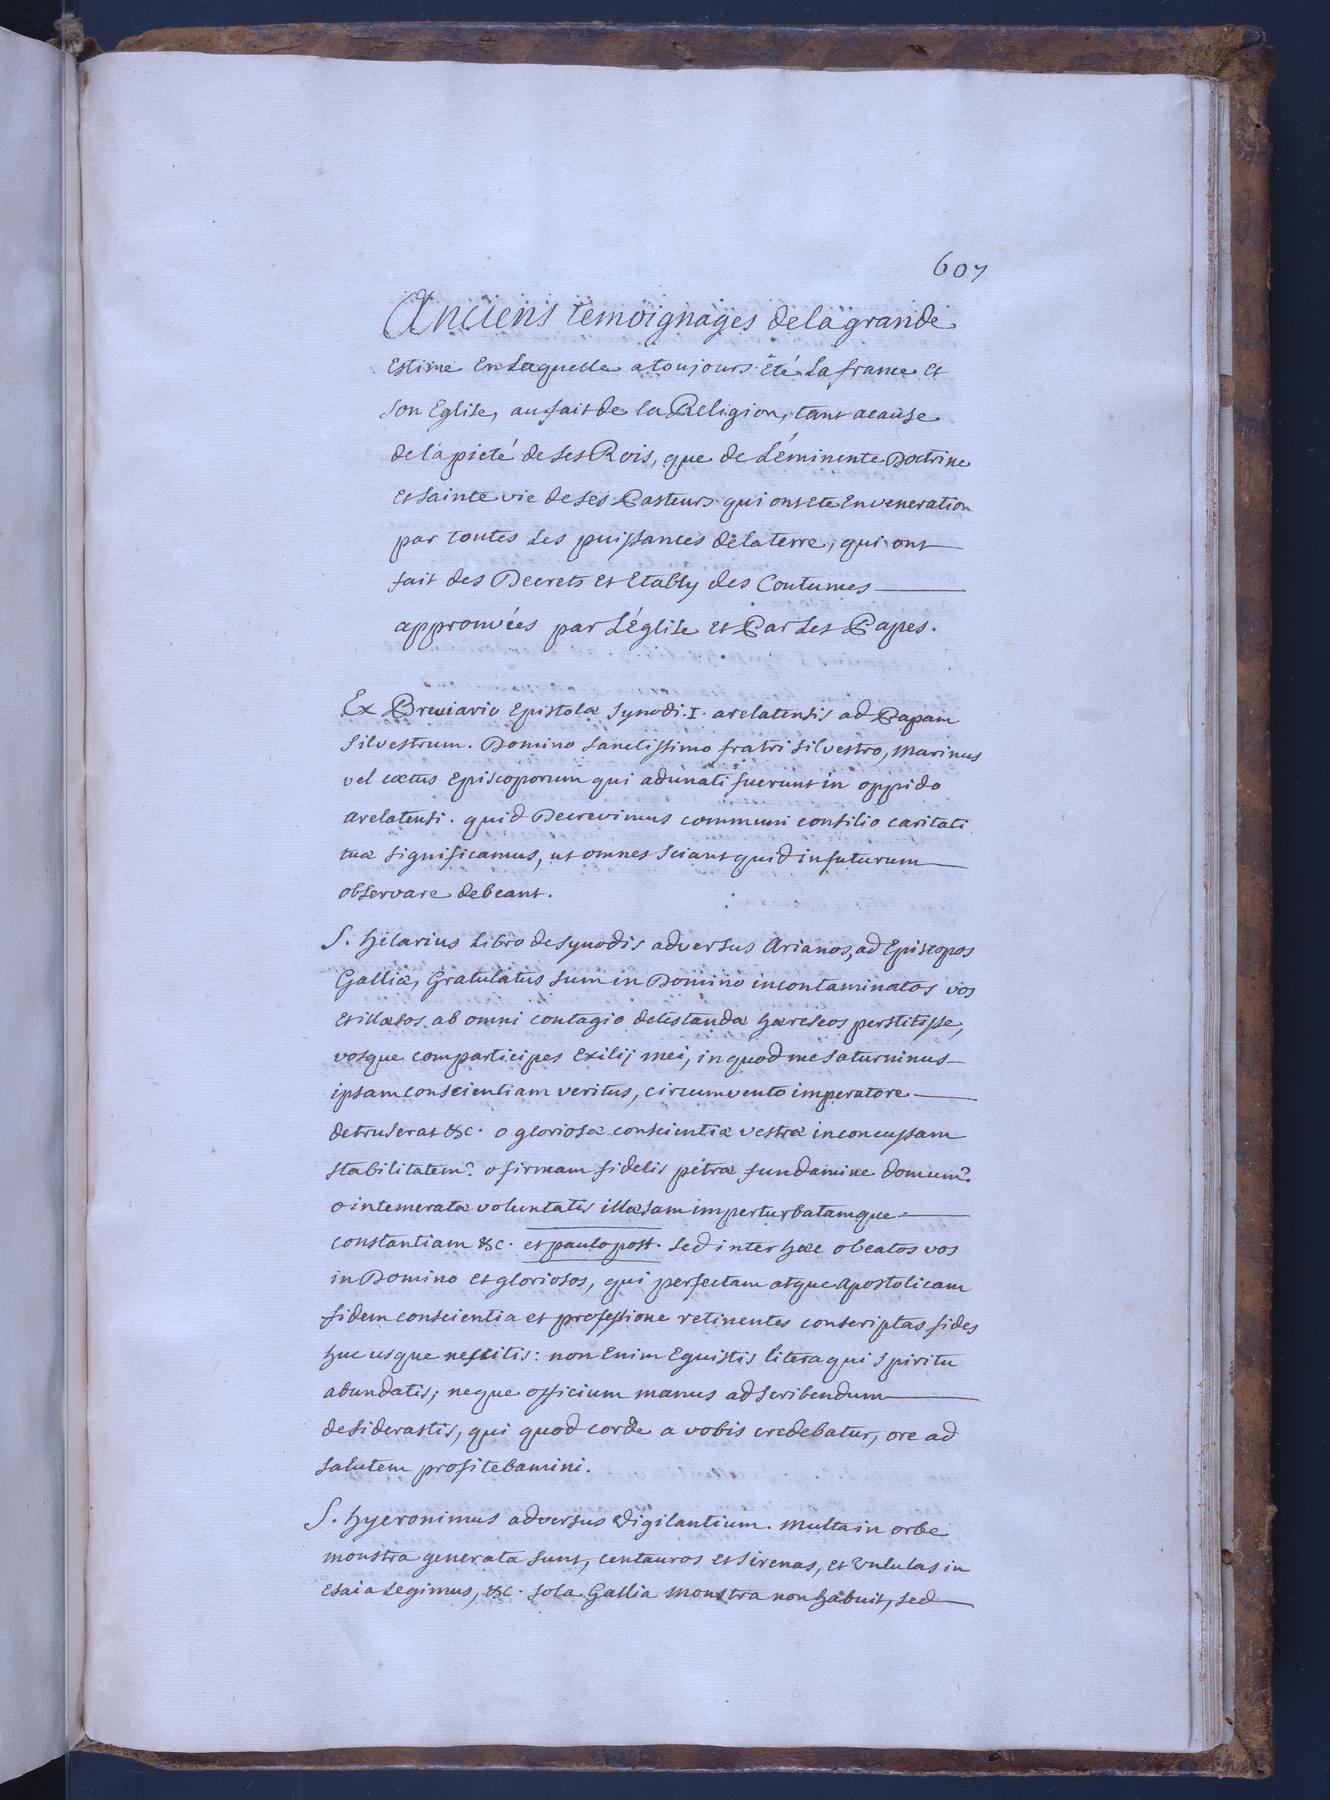 607
Anciens temoignages de la grande
Estime En Laquelle a toujours Eté La france Et
son Eglise, au fait de la Religion, tant acause
de la pieté de ses Rois, que de L'éminente Doctrine
et Sainte vie de ses Pasteurs qui ont ete En veneration
par toutes Les puissances de la terre, qui ont
fait des Decrets et Etably des Coutumes
approuvées par L'église et Par Les Papes.
Ex Breviario Epistolæ Synodi. I. arelatensis ad Papam
Silvestrum. Domino Sanctissimo fratri Silvestro, Marinus
vel cœtus Episcoporum qui adunati fuerunt in oppido
arelatensi. quid Decrevimus communi consilio caritati
tuæ significamus, ut omnes Sciant quid in futurum
observare debeant.
S. hilarius Libro de Synodis adversus Arianos, ad Episcopos
Galliæ, Gratulatus Sum in Domino incontaminatos vos
Et illæsos ab omni contagio detestandæ hæreseos perstitisse,
vosque comparticipes Exilij mei, in quod me Saturninus
ipsam conscientiam veritus, circumvento imperatore
detruserat &c. o gloriosæ conscientiæ vestræ inconcussam
stabilitatem? o firmam fidelis petræ fundamine domum?
o intemeratæ voluntatis illæsam imperturbatamque
constantiam &c. et paulo post. Sed inter hæc o beatos vos
in Domino et gloriosos, qui perfectam atque Apostolicam
fidem conscientia et professione retinentes conscriptas fides
huc usque nescitis: non Enim Eguistis litera qui Spiritu
abundatis; neque officium manus ad Scribendum
desiderastis, qui quod corde a vobis credebatur, ore ad
salutem profitebamini.
S. hyeronimus adversus Vigilantium. Multa in orbe
monstra generata Sunt, centauros et Sirenas, et Ululas in
Esaia Legimus, &c. Sola Gallia Monstra non habuit, Sed